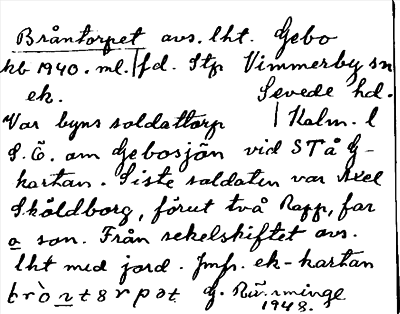 Bråntorpet avs. lht. Gebo
kb 1940. ml. fd. Stp Vimmerby sn
ek. Sevede hd.
Var byns soldattorp Kalm. l
S.Ö. om Gebosjön vid STÅ G-
kartan. Siste soldaten var Axel
Sköldborg, förut två Rapp, far
o son. Från sekelskiftet avs.
lht med jord. Jmf. ek-kartan
G.
1948.